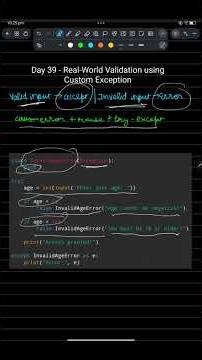 10:25 pm
Day 39 - Real-World Validation using
Custom Exception
Valid input → accept | Invalid input → error
custom error + raise + try - except
class InvalidAgeError(Exception):
try:
age = int(input("Enter your age: "))
if age <
raise InvalidAgeError("Age cannot be negative!")
if age <
raise InvalidAgeError("You must be 18 or older!")
print("Access granted!")
except InvalidAgeError as e:
print("Error:", e)